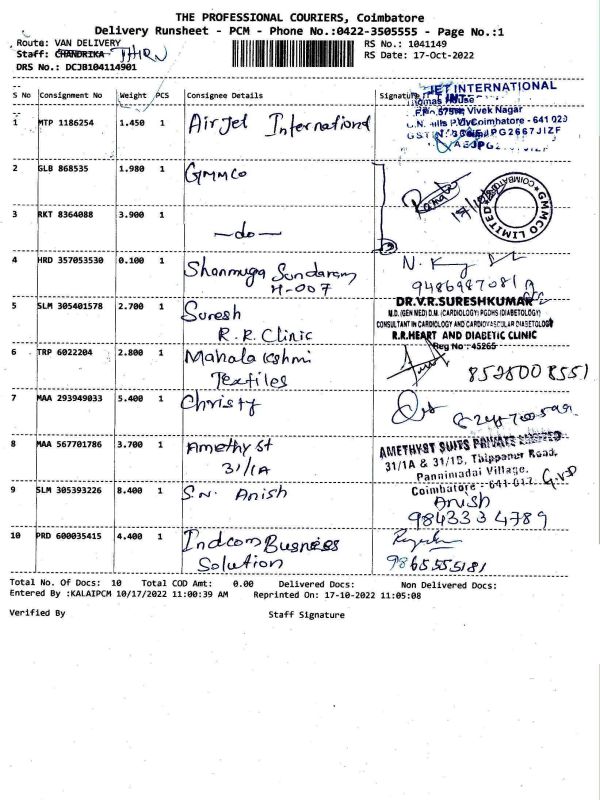 THE PROFESSIONAL COURIERS, Coimbatore
Delivery Runsheet - PCM - Phone No.:0422-3505555 - Page No.:1
Route: VAN DELIVERY RS No.: 1041149
Staff: CHANDRIKA THIRU RS Date: 17-Oct-2022
DRS No.: DCJB104114901
S No Consignment No Weight PCS Consignee Details Signature
JET INTERNATIONAL
Thomas House
Vivek Nagar
Coimbatore - 641 029
1 MTP 1186254 1.450 1 Airjet International
2 GLB 868535 1.980 1 GMMCO
GMMCO LIMITED * COIMBATORE *
3 RKT 8364088 3.900 1 —do—
4 HRD 357053530 0.100 1 Shanmuga Sundaram
H-007
5 SLM 305401578 2.700 1 Suresh
R.R. Clinic
DR.V.R.SURESHKUMAR
M.D. (GEN MED) D.M. (CARDIOLOGY) PGDHS (DIABETOLOGY)
CONSULTANT IN CARDIOLOGY AND CARDIOVASCULAR DIABETOLOGY
R.R.HEART AND DIABETIC CLINIC
Reg No : 45265
6 TRP 6022204 2.800 1 Mahalakshmi
Textiles
8525008551
7 MAA 293949033 5.400 1 Christy
8 MAA 567701786 3.700 1 Amethyst
31/1A
AMETHYST SUITS PRIVATE LIMITED
31/1A & 31/1B, Thippanur Road,
Pannimadai Village,
Coimbatore - 641 017
9 SLM 305393226 8.400 1 S.N. Anish
Anish
9843334789
10 PRD 600035415 4.400 1 Indcom Business
Solution
9865555181
Total No. Of Docs: 10 Total COD Amt: 0.00 Delivered Docs: Non Delivered Docs:
Entered By :KALAIPCM 10/17/2022 11:00:39 AM Reprinted On: 17-10-2022 11:05:08
Verified By Staff Signature